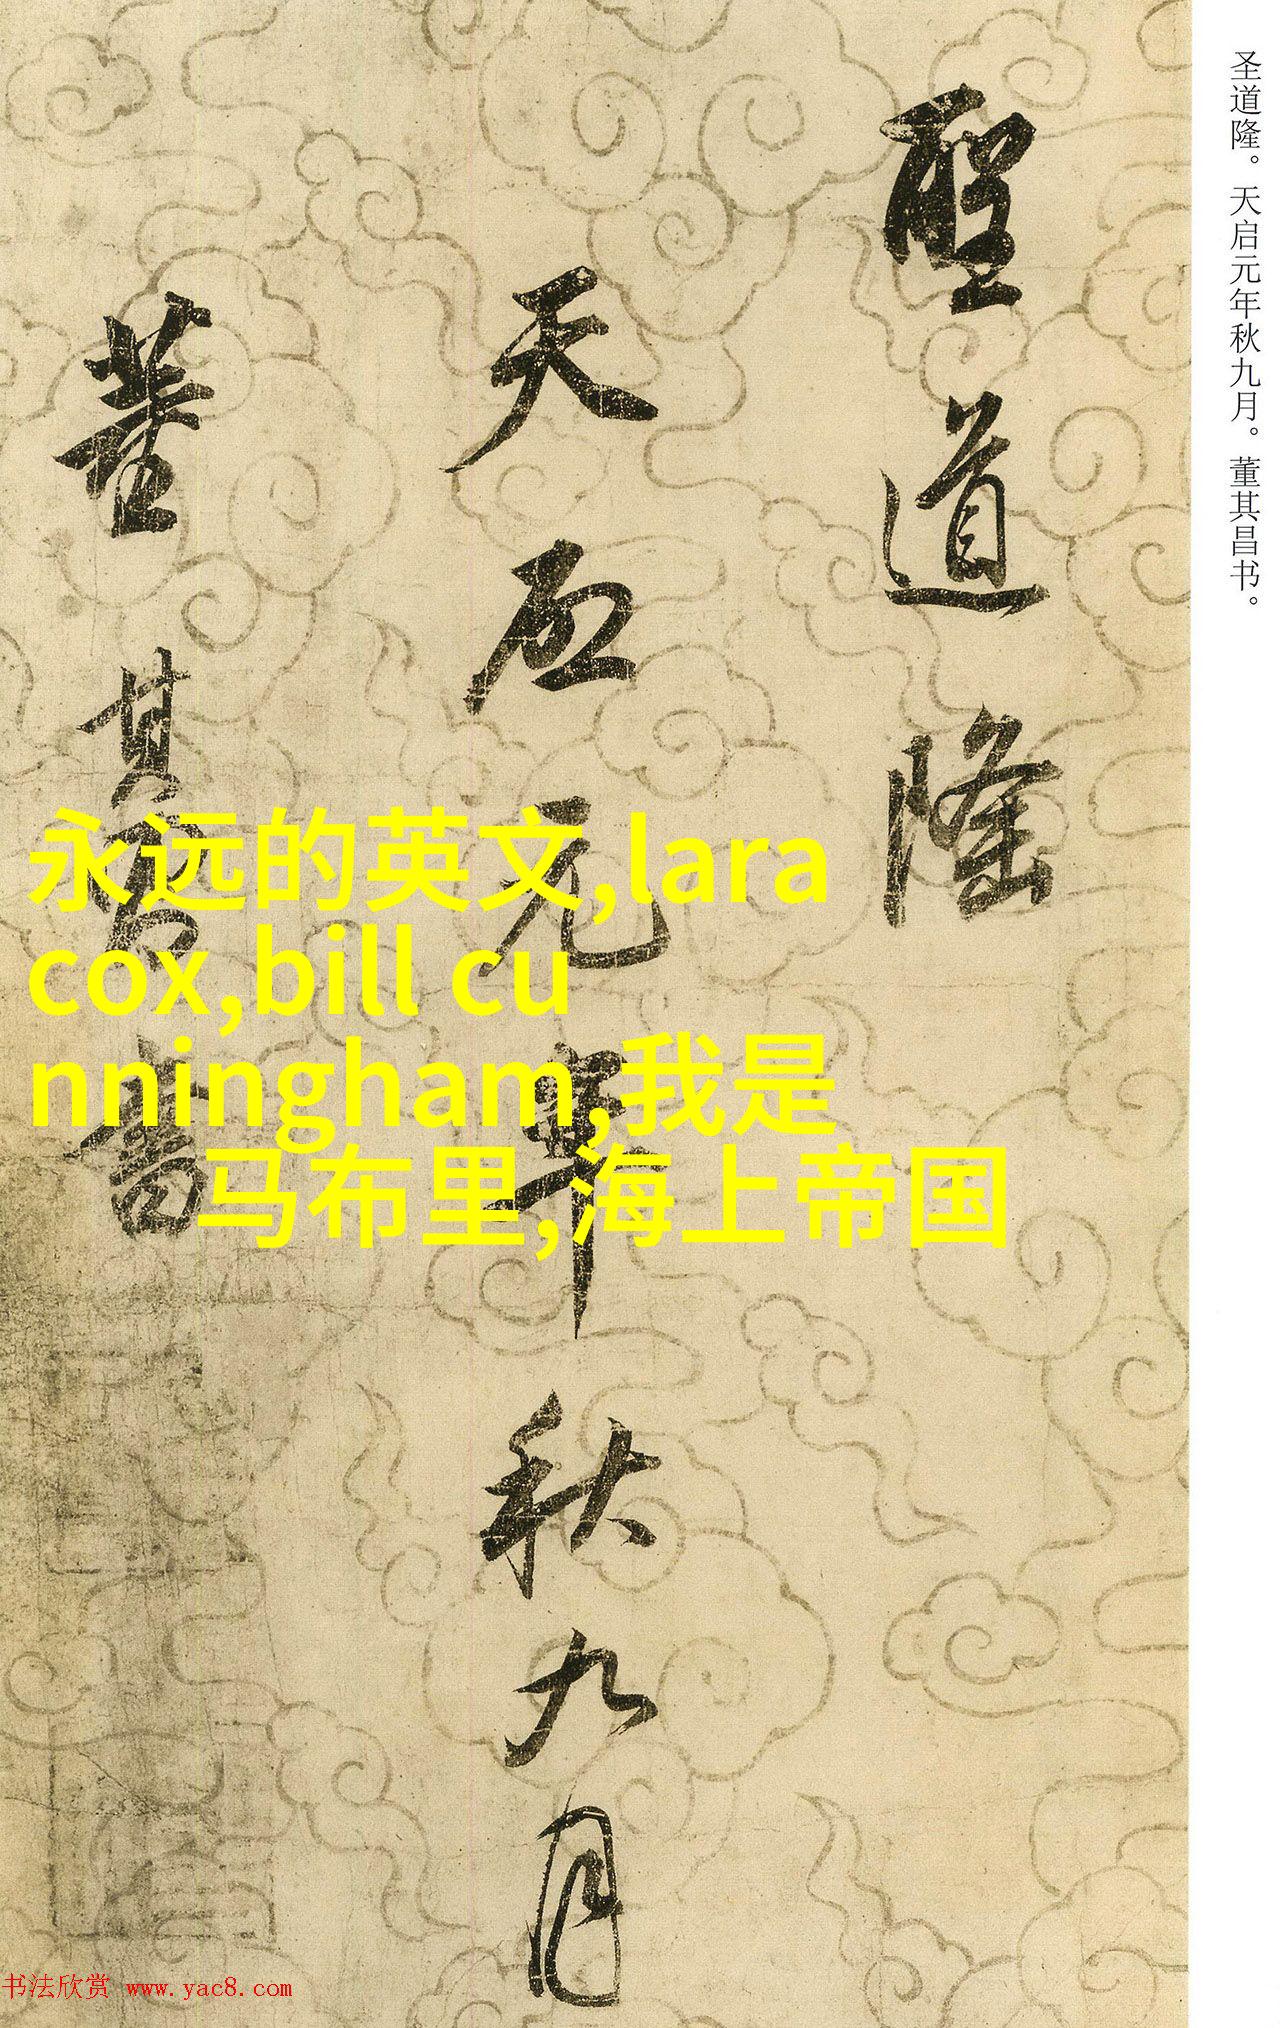 圣道隆。天启元年秋九月。董其昌书。
聖道隆
天启元年秋九月
董其昌書
永远的英文,lara
cox,bill cu
nningham,我是
马布里,海上帝国
书法欣赏 www.yac8.com